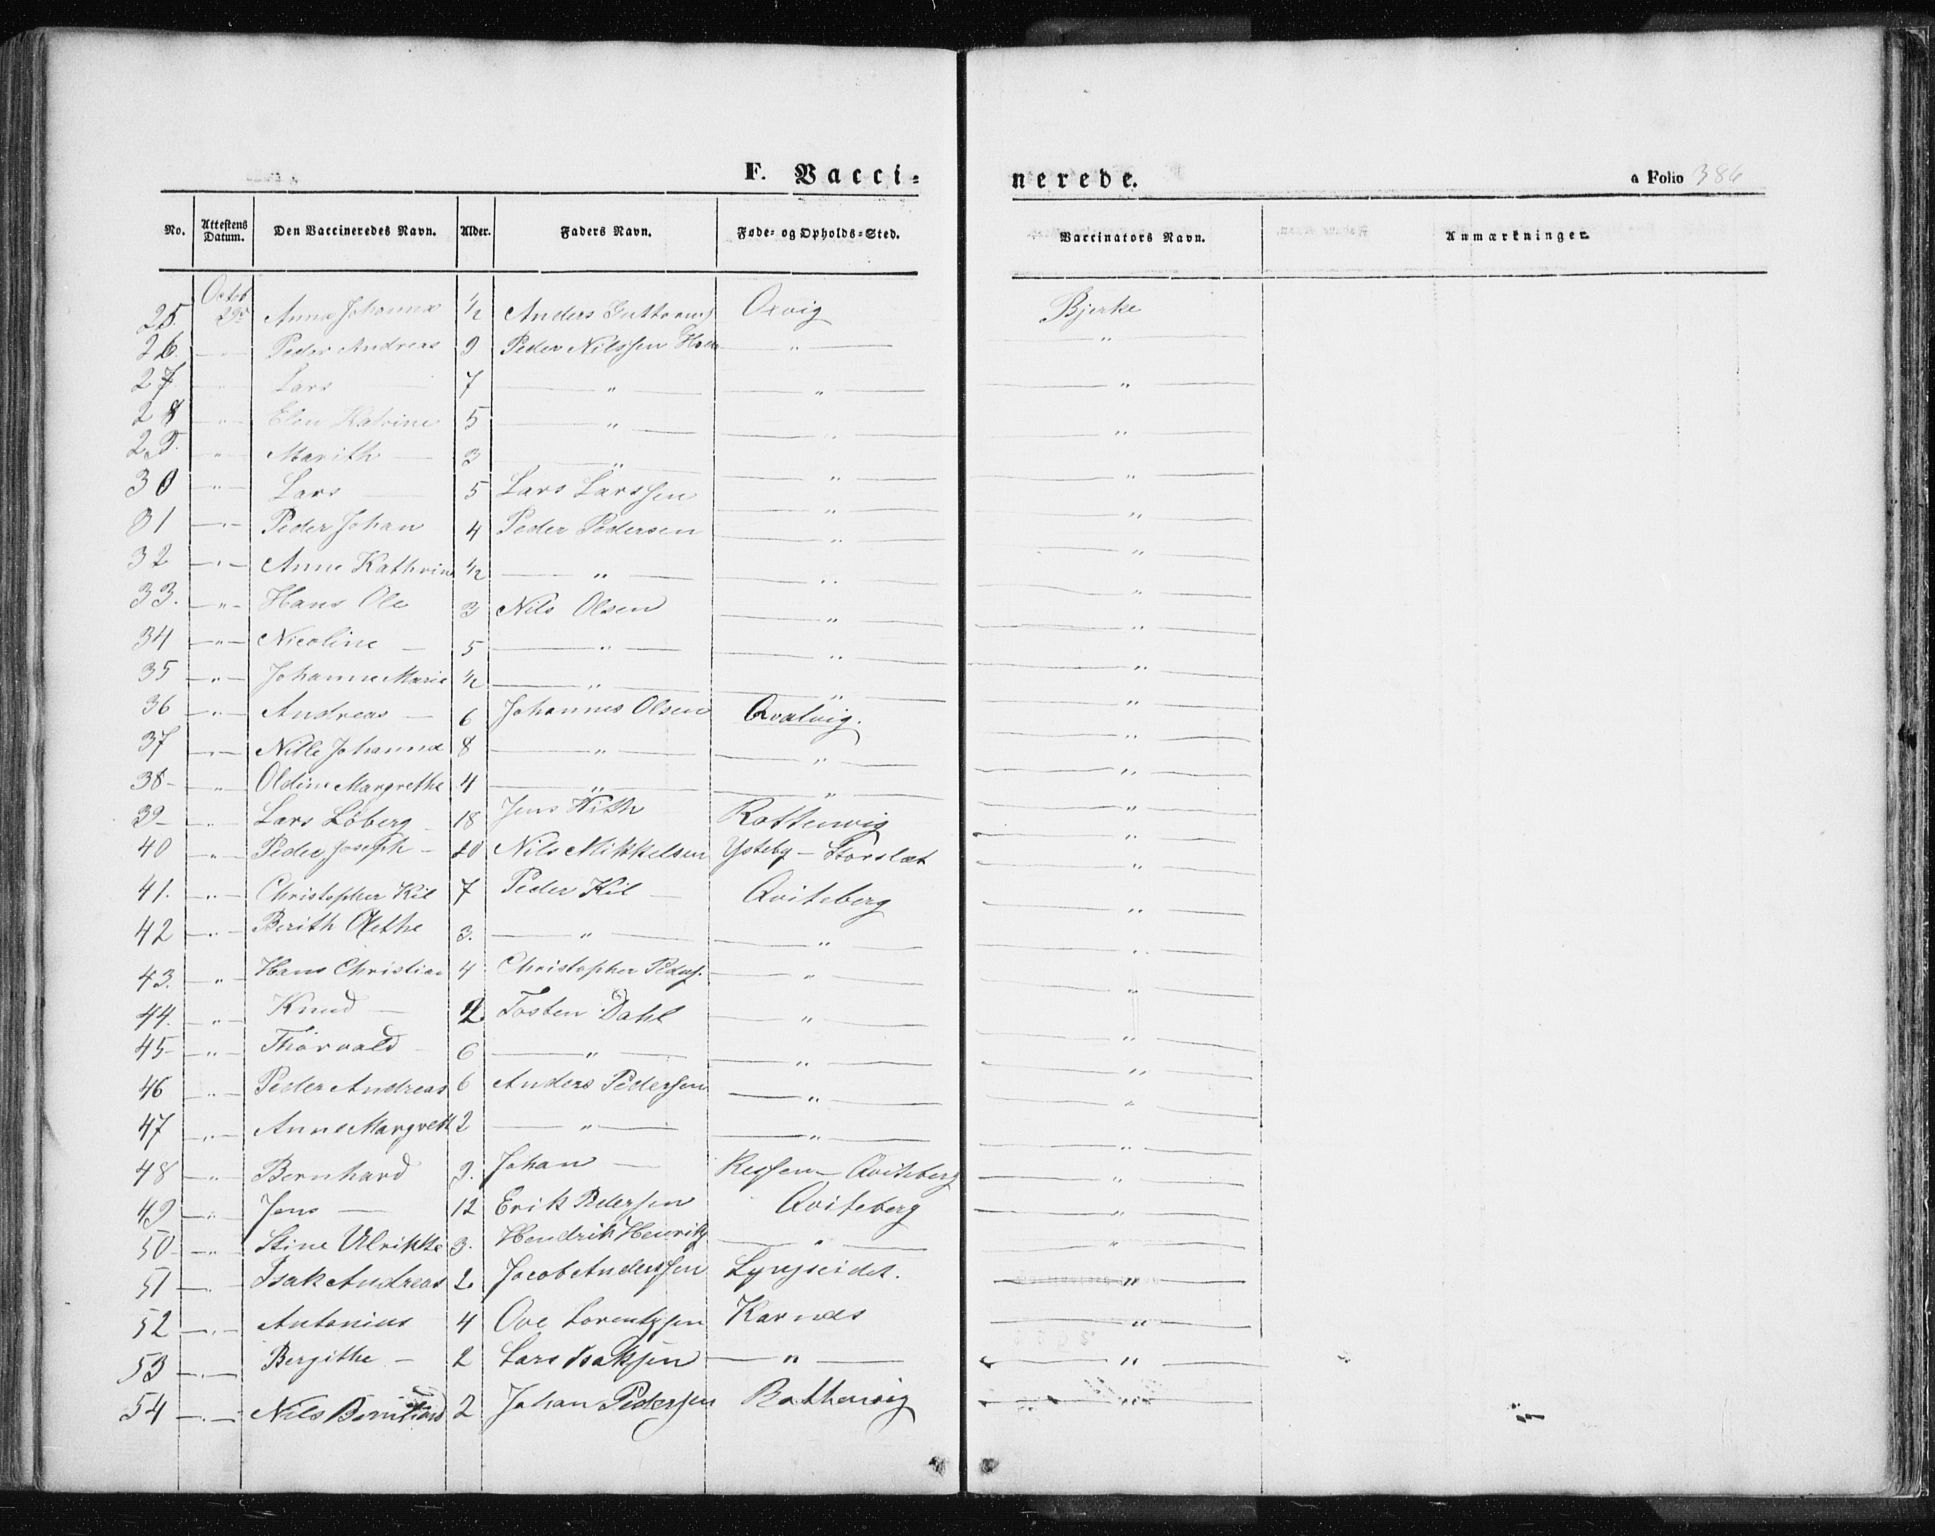 F. Vacci-nerede. a Folio 386
No. Attestens Datum. Den Vaccineredes Navn. Alder. Faders Navn. Føde- og Opholds-Sted. Vaccinators Navn. Anmærkninger.
25. Octob 29 Anna Johanna ½ Anders Guttorms Oxvig Bjerke
26. " Peder Andreas 9 Peder Nilssen " "
27 " Lars 7 " " "
28 " Elen Katrine 5 " " "
29. " Marith 3 " " "
30 " Lars 5 Lars Larssen " "
31 " Peder Johan 4 Peder Pedersen " "
32 " Anne Kathrine ½ " " "
33. " Hans Ole 3 Nils Olsen " "
34 " Nicoline 5 " " "
35 " Johanne Marie ½ " " "
36 " Andreas 6 Johannes Olsen Qvalvig. "
37 " Nille Johanna 8 " " "
38- " Oldine Margrethe 4 " " "
39- " Lars Löberg 18 Jens Rottenvig "
40 " Peder Joseph 20 Nils Mikkelsen Ysteby - Storslæt "
41. " Christopher Kil 7 Peder Kil Qviteberg "
42 " Berith Alethe 3. " " "
43. " Hans Christian 4 Christopher Peders. " "
44. " Knud 2 Tosten Dahl " "
45- " Thorvald 6 " " "
46 " Peder Andreas 6 Anders Pederssen " "
47 " Anne Margreth 2 " " "
48 " Bernhard 3. Johan Qviteberg "
49 " Jens 12 Erik Pederssen Qviteberg "
50- " Stine Ulrikke 3. Hendrik Henriks " "
51 " Isak Andreas 2 Jacob Anderssen Lyngseidet. "
52 " Antonius 4 Ove Lorentzsen Karnes "
53 " Bergithe 2 Lars Isaksen " "
54 " Nils 2 Johan Pederssen Rottenvig "